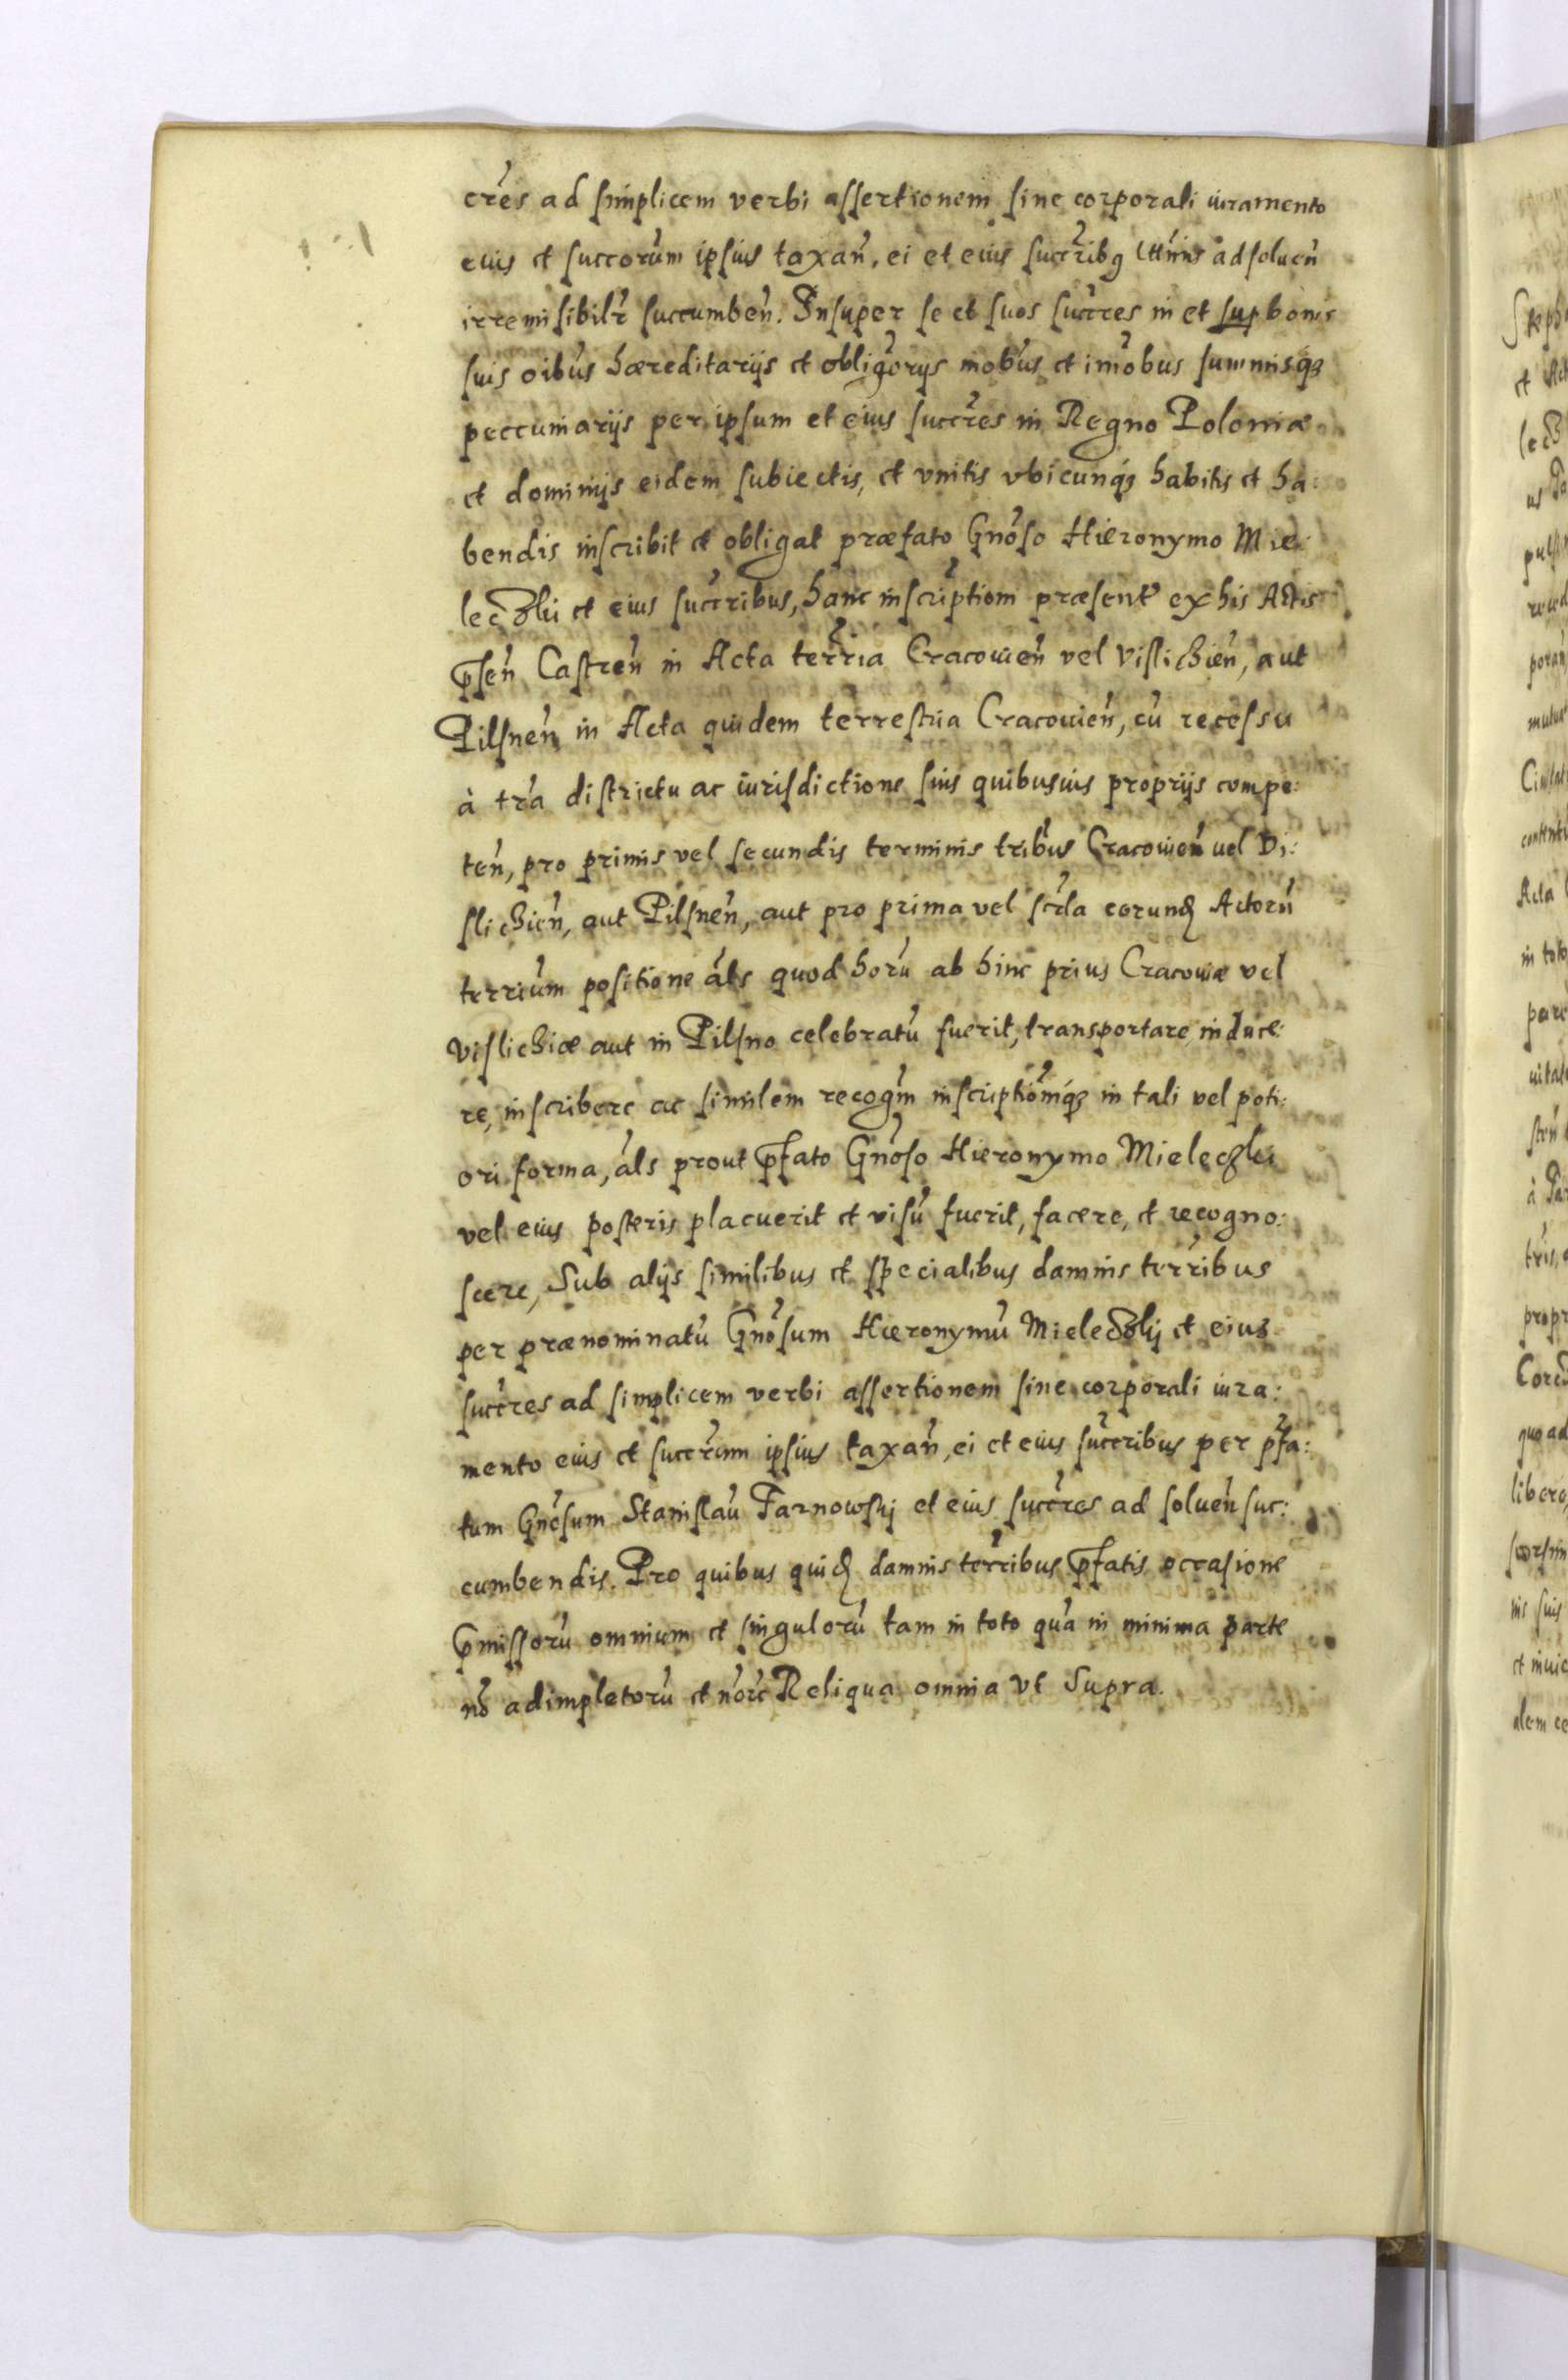 cres ad simplicem verbi assertionem sine corporali iuramento
eius et succorum ipsius taxan, ei et eius succribq ad soluen
irremisibilr succumben. Insuper se et suos succres in et sup bonis
suis oibus hæreditarijs et obligorys mobus et imobus summisq3
peccuniarijs per ipsum et eius succres in Regno Poloniæ
et dominijs eidem subiectis, et vnitis vbicunq3 habitis et ha:
bendis inscribit et obligat præfato Gnoso Hieronymo Mie:
leczki et eius succribus, hanc inscriptiom præsent ex his Actis
psen Castren in Acta terria Cracouien vel Vislichien, aut
Pilsnen in Acta quidem terrestria Cracouien, cu recessu
à tra districtu ac iurisdictione suis quibusuis proprijs compe:
ten, pro primis vel secundis terminis tribus Cracouien uel Vi:
slichien, aut Pilsnen, aut pro prima vel scda eorund Actoru
terrium positione als quod horu ab hinc prius Cracouiæ vel
Vislichiæ aut in Pilsno celebratu fuerit, transportare, induce:
re, inscribere ac similem recogm inscriptiomq3 in tali vel poti:
ori forma, als prout pfato Gnoso Hieronymo Mieleczki
vel eius posteris placuerit et visu fuerit, facere, et recogno:
scere, Sub alijs similibus et specialibus damnis terribus
per prænominatu Gnosum Hieronymu Mieleczkj et eius
succres ad simplicem verbi assertionem sine corporali iura:
mento eius et succrum ipsius taxan, ei et eius succribus per pfa:
tum Gnosum Stanislau Tarnowskj et eius succres ad soluen suc:
cumbendis. Pro quibus quid damnis terribus pfatis occasione
pmissoru omnium et singuloru tam in toto qua in minima parte
no adimpletoru et Reliqua omnia vt Supra.